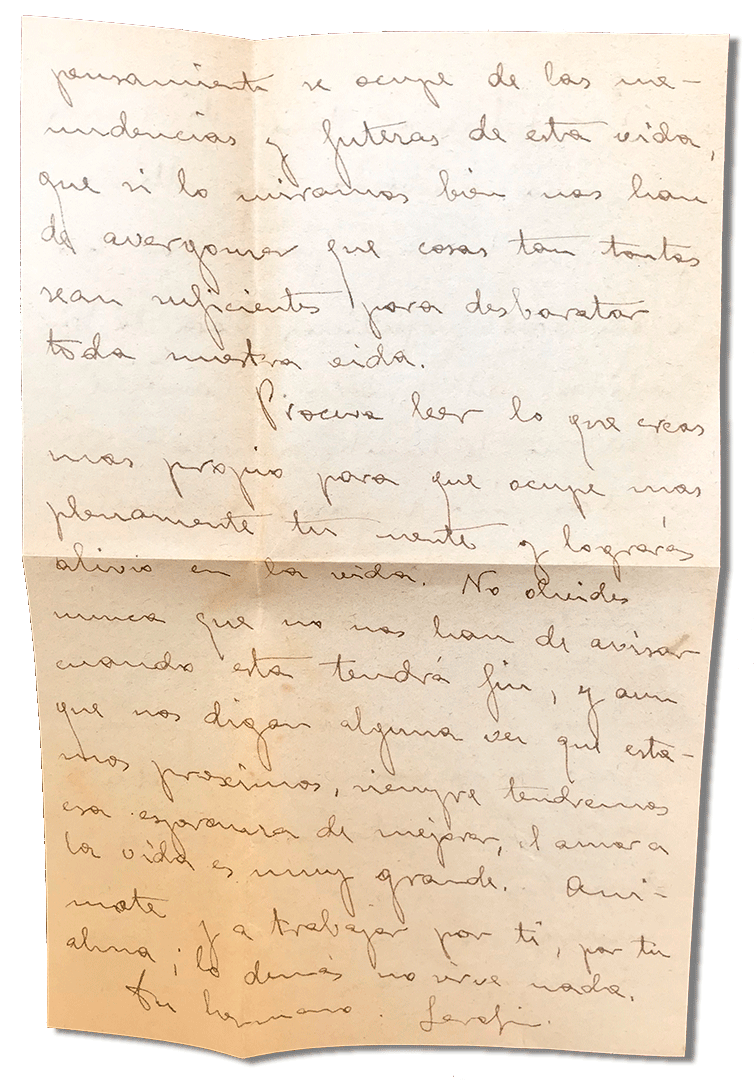 pensamiento se ocupe de las me-
nudencias y futeras de esta vida,
que si lo miramos bien nos han
de avergonzar que cosas tan tontas
sean suficientes para desbaratar
toda nuestra vida.
Procura leer lo que creas
mas propio para que ocupe mas
plenamente tu mente y lograrás
alivio en la vida. No olvides
nunca que no nos han de avisar
cuando esta tendrá fin, y aun
que nos digan alguna vez que esta-
mos proximos, siempre tendremos
esa esperanza de mejorar, el amor a
la vida es muy grande. Aní-
mate y a trabajar por ti, por tu
alma; lo demás no sirve nada.
Tu hermano. Serafin.